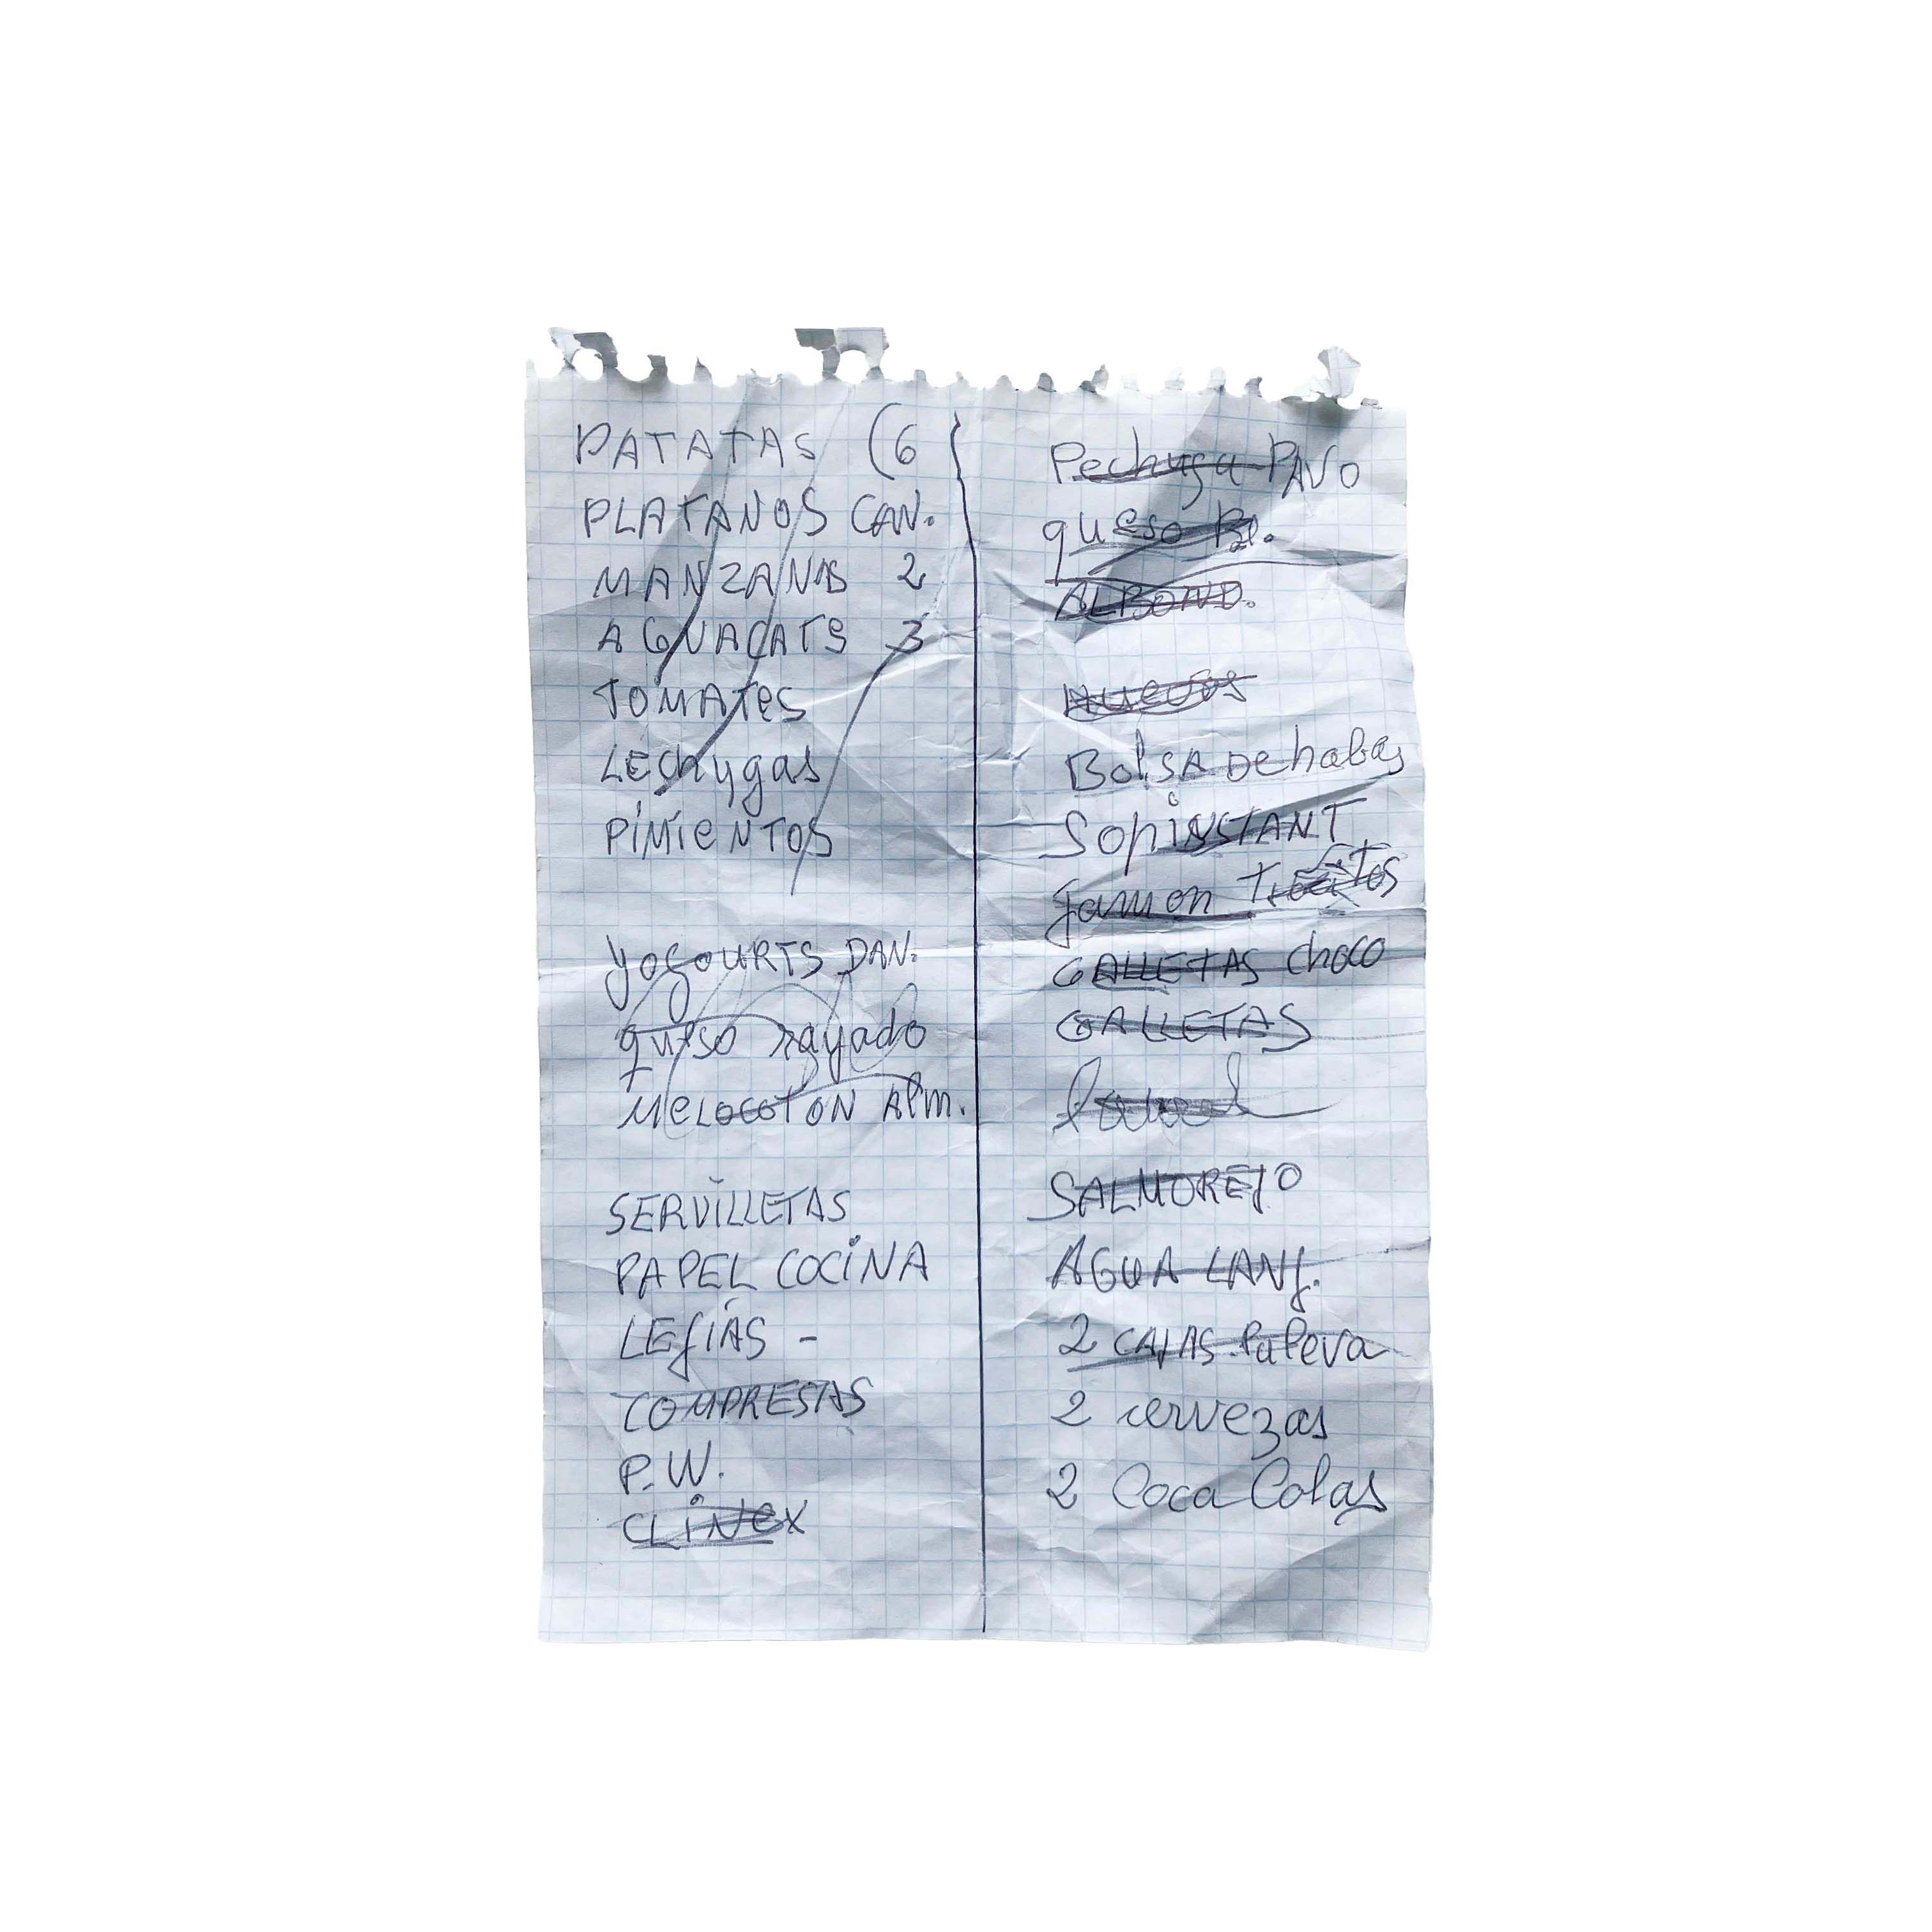 PATATAS (6
PLATANOS CAN.
MANZANAS 2
AGUACATS 3
TOMATES
LEchugas
PIMIENTOS
YOGOURTS DAN.
queso rayado
MELOCOTON Alm.
SERVILLETAS
PAPEL COCINA
LEJIAS -
COMPRESAS
P.W.
CLINEX
Pechuga PAVO
queso
ALBOND.
HUEVOS
Bolsa De habas
Sopinstant
Jamon
GALLETAS choco
GALLETAS
SALMOREJO
AGUA LANJ.
2 CAJAS Puleva
2 cervezas
2 Coca Colas